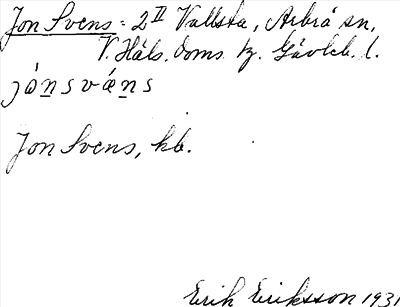 Jon Svens = 2II Vallsta, Arbrå sn,
V. Häls. doms. tg. Gävleb. l.
jó̱nsvǽns
Jon Svens, kb.
Erik Eriksson 1931